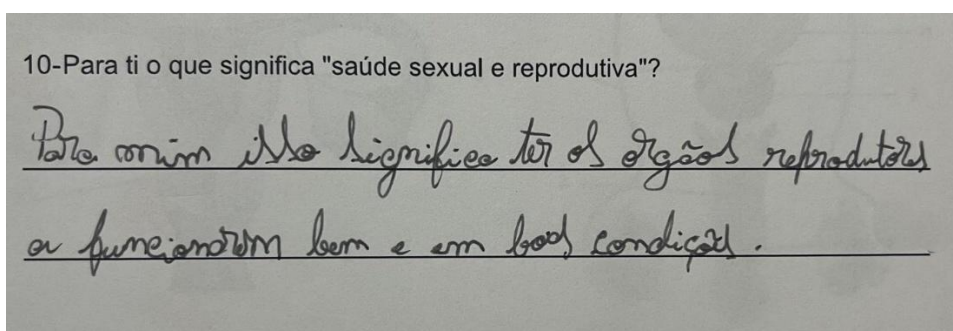 10-Para ti o que significa "saúde sexual e reprodutiva"?
Para mim isso significa ter os orgãos reprodutores
a funcionarem bem e em boas condições.